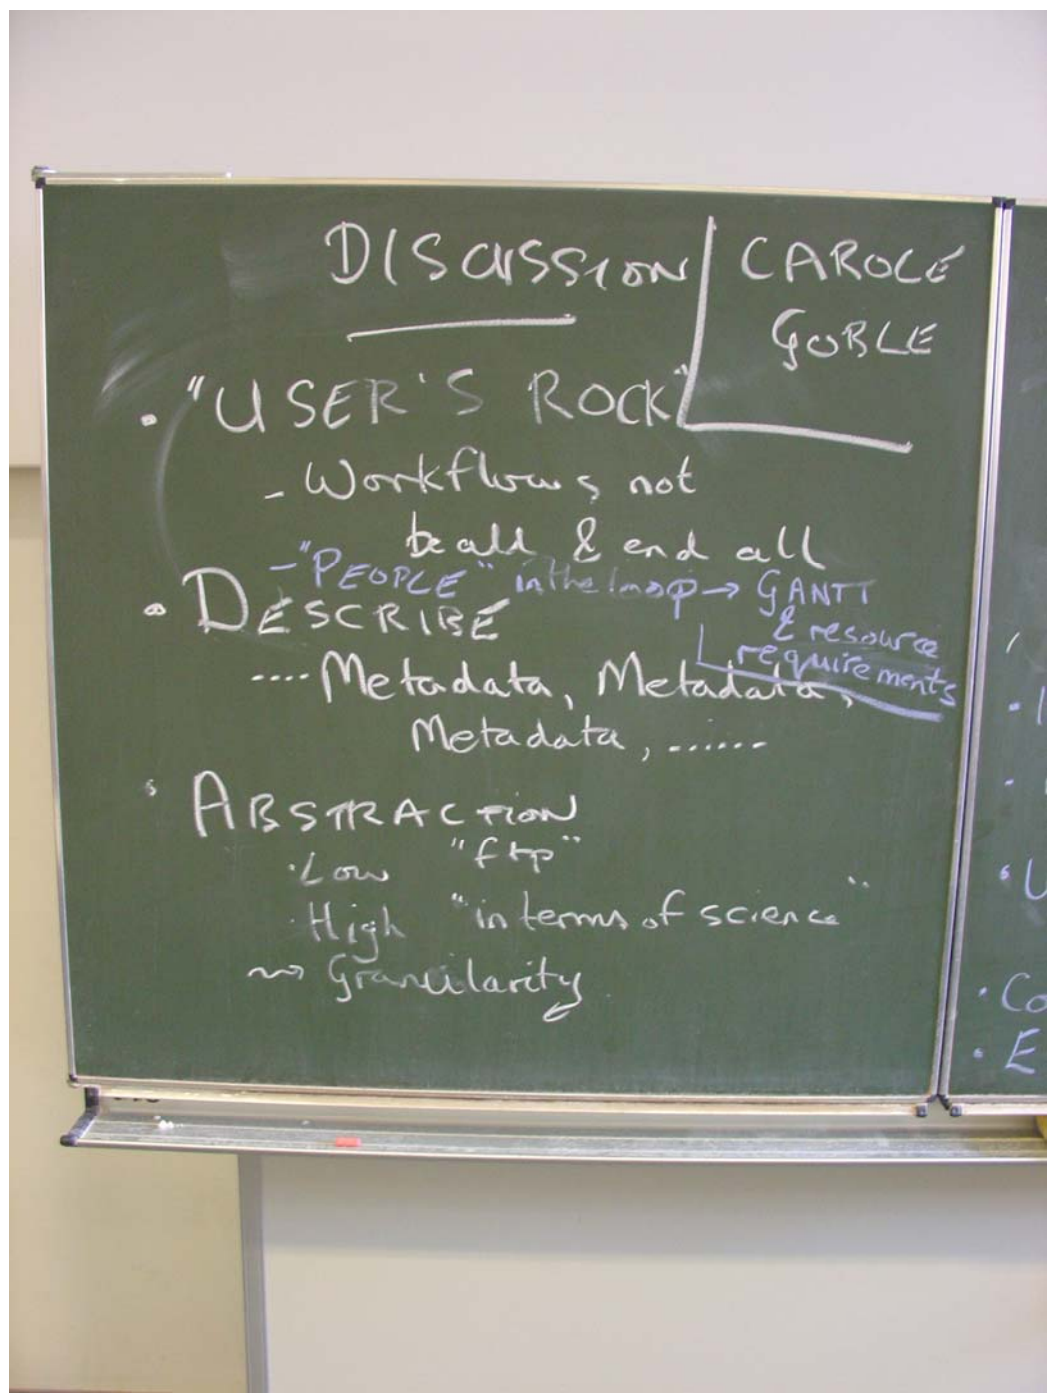 DISCUSSION
CAROLE
GOBLE
• "USER'S ROCK"
- Workflows not
be all & end all
- "PEOPLE" in the loop → GANTT
& resource
requirements
• DESCRIBE
.... Metadata, Metadata,
Metadata, ......
• ABSTRACTION
• Low "ftp"
• High "in terms of science"
~> Granularity
• U
• Co
• E